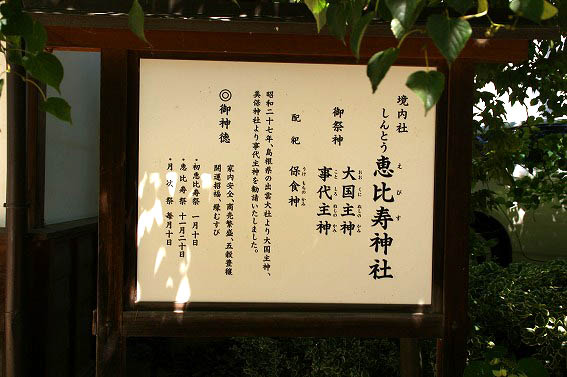 境内社
しんとう恵比寿神社
えびす
御祭神
大国主神
おおくにぬしのかみ
事代主神
ことしろぬしのかみ
配祀
保食神
うけもちのかみ
昭和二十七年、島根県の出雲大社より大国主神、
美保神社より事代主神を勧請いたしました。
◎御神徳
家内安全、商売繁盛、五穀豊穣
開運招福、縁むすび
・初恵比寿祭 一月十日
・恵比寿祭 十一月二十日
・月次祭 毎月十日